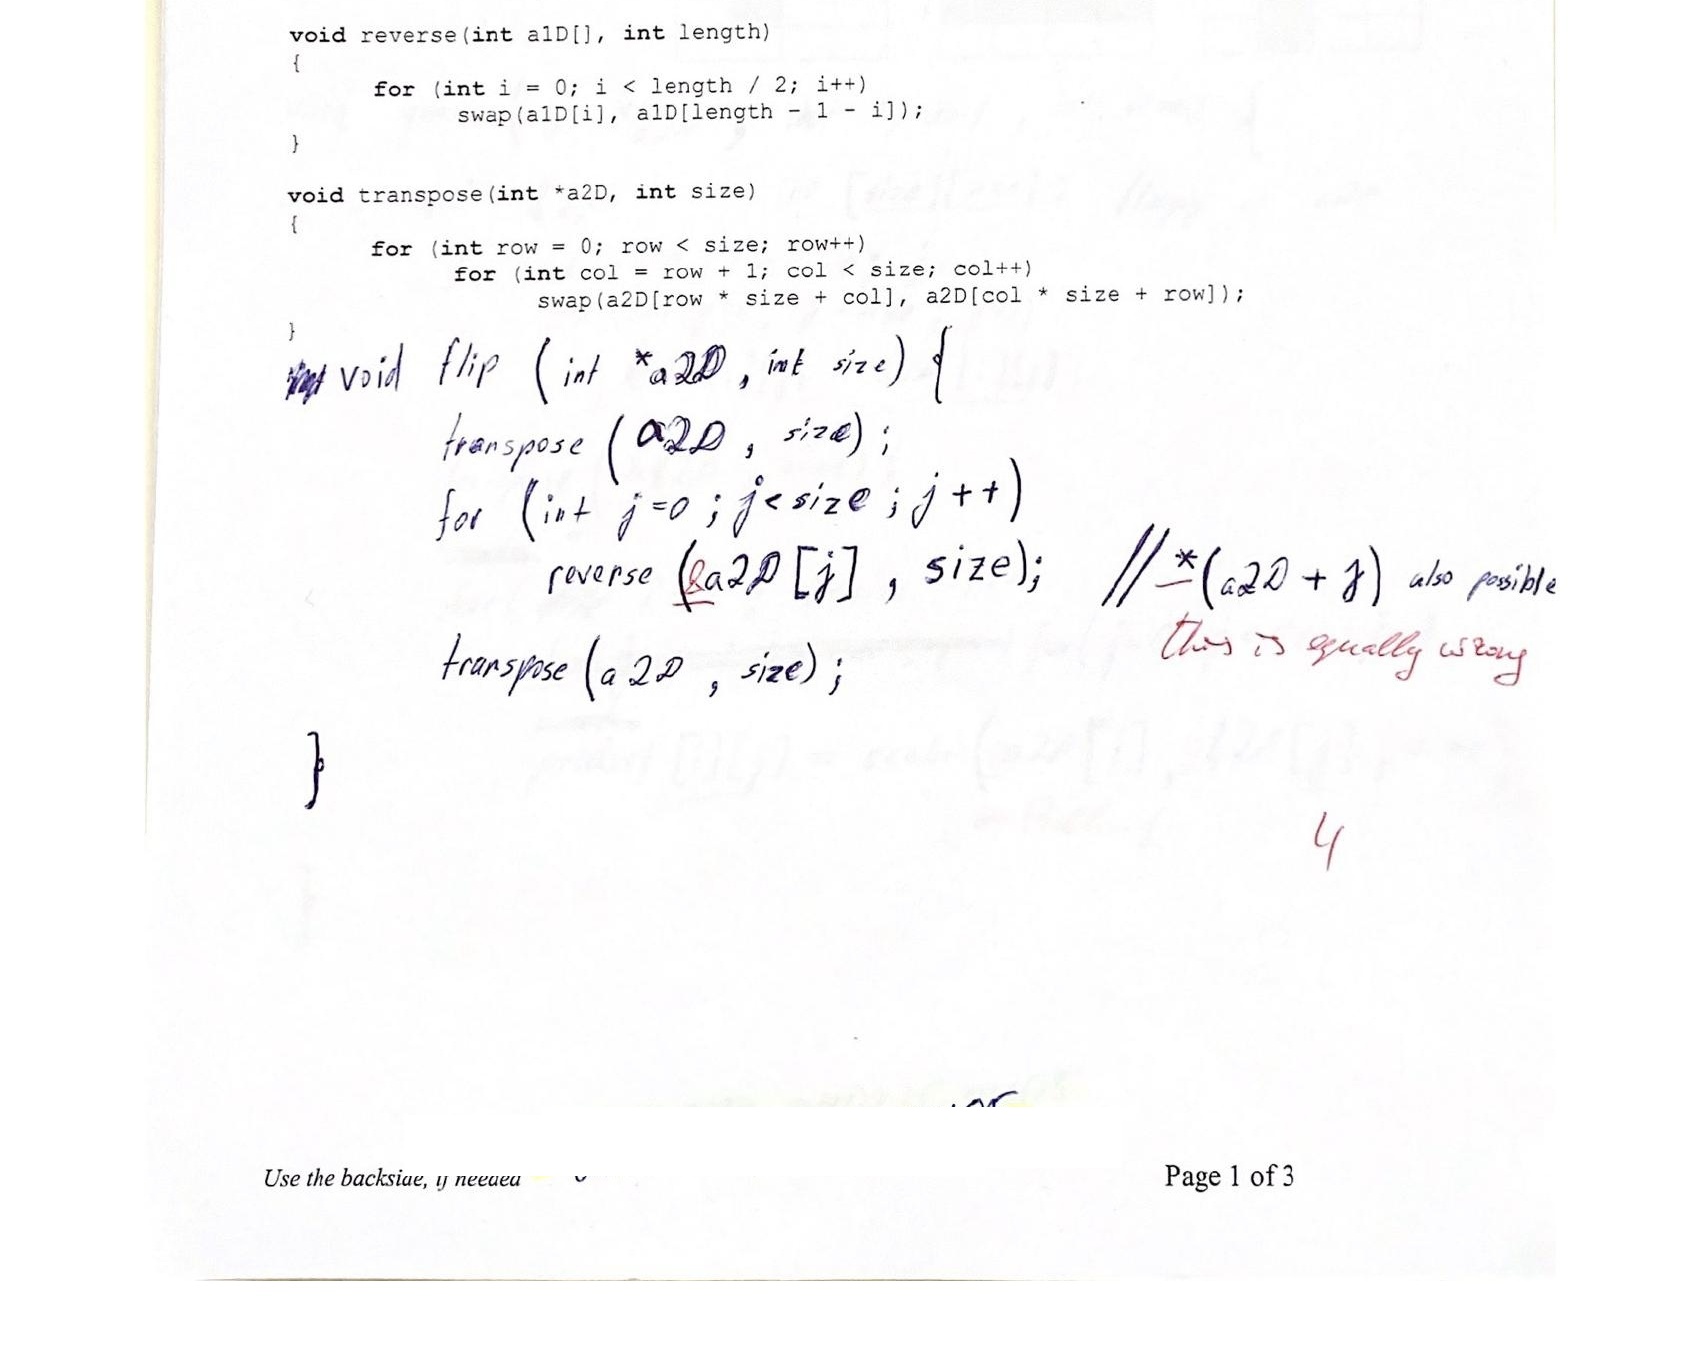 void reverse(int a1D[], int length)
{
for (int i = 0; i < length / 2; i++)
swap(a1D[i], a1D[length - 1 - i]);
}
void transpose(int *a2D, int size)
{
for (int row = 0; row < size; row++)
for (int col = row + 1; col < size; col++)
swap(a2D[row * size + col], a2D[col * size + row]);
}
void flip (int *a2D, int size) {
transpose (a2D, size);
for (int j=0; j<size; j++)
reverse (&a2D[j], size); // *(a2D + j) also possible
this is equally wrong
transpose (a2D, size);
}
4
Use the backside, if needed
Page 1 of 3